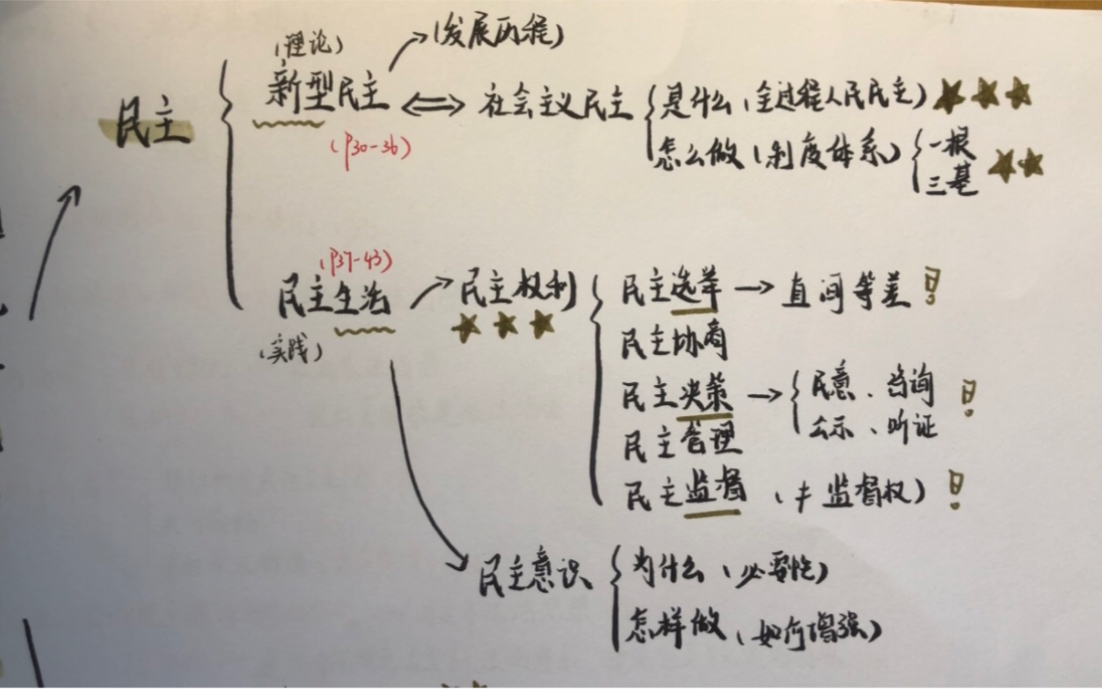 (理论)
(发展历程)
新型民主
社会主义民主
是什么(全过程人民民主)
民主
(P30-36)
怎么做(制度体系)
一根
三基
(P37-43)
民主生活
(实践)
民主权利
民主选举 → 直间等差
民主协商
民主决策 →
民意、咨询
公示、听证
民主管理
民主监督 (≠监督权)
民主意识
为什么(必要性)
怎样做(如何增强)